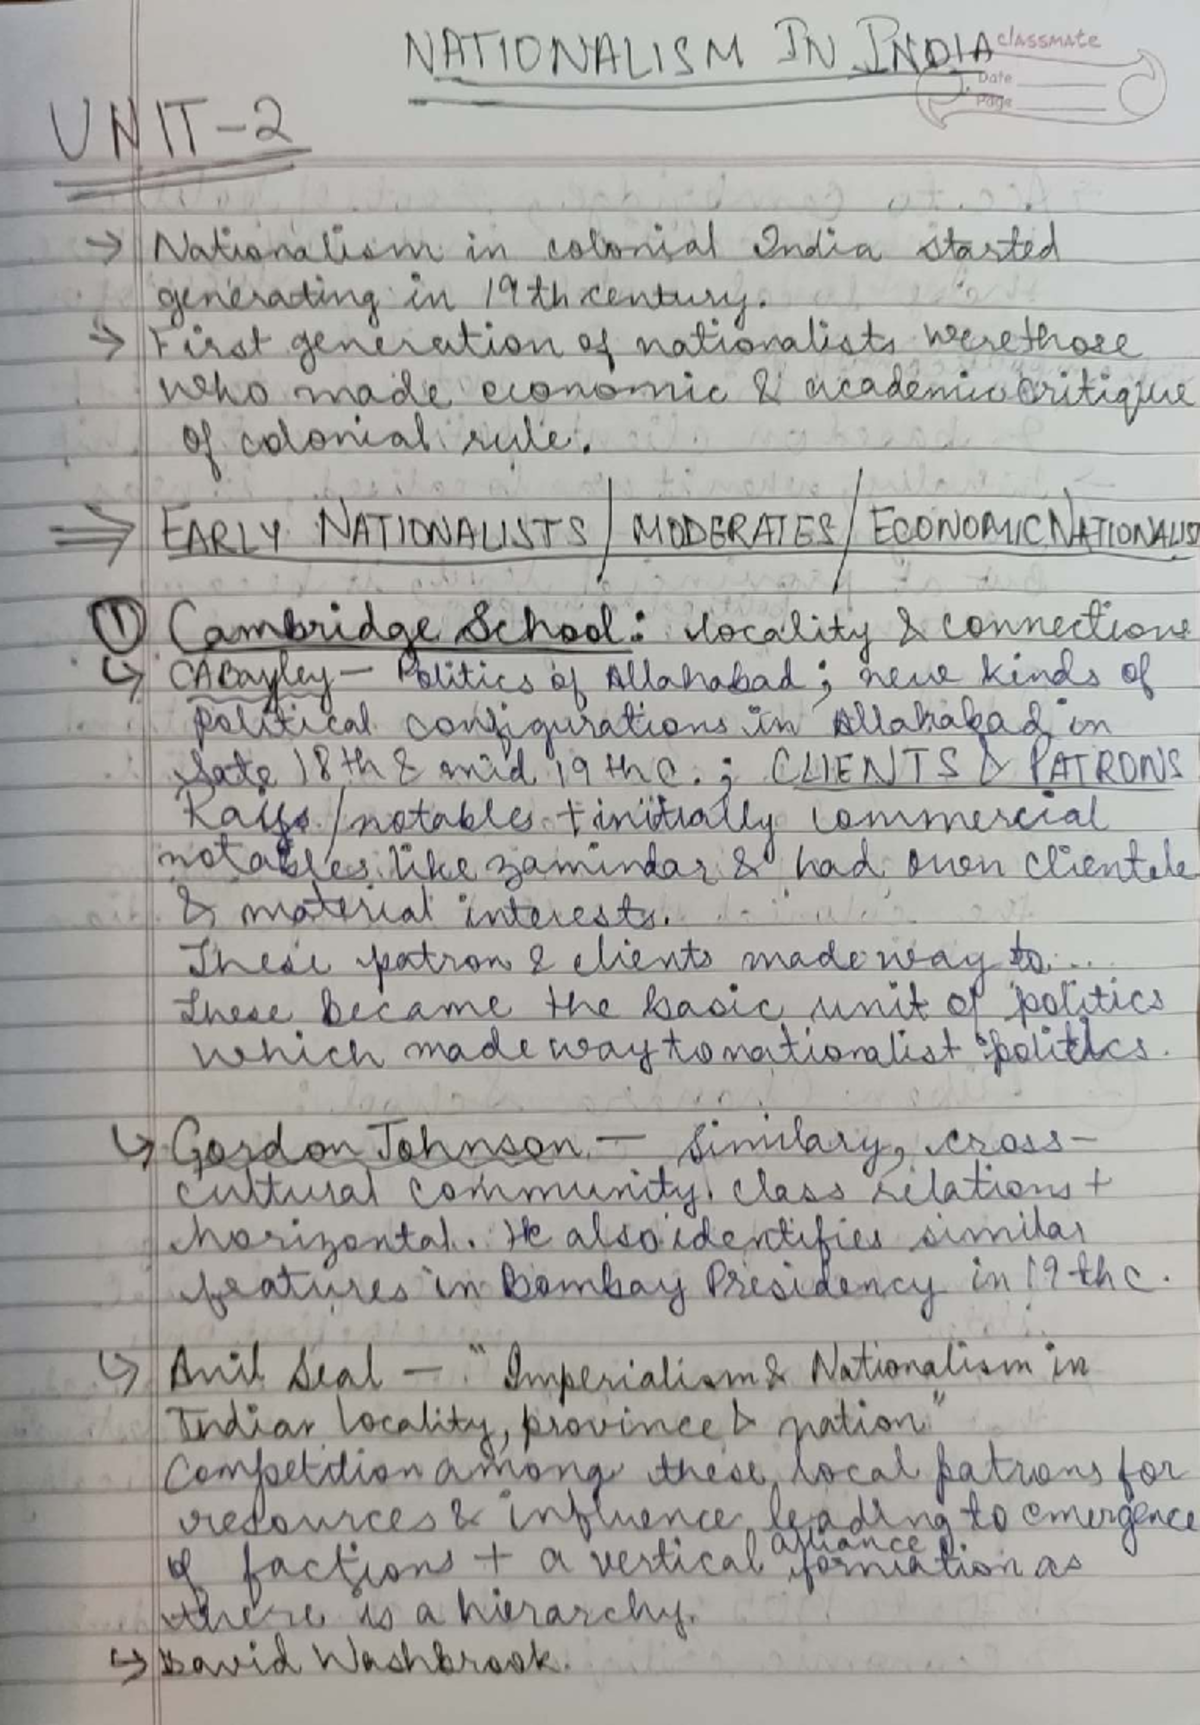 NATIONALISM IN INDIA
classmate
Date
Page
UNIT-2
→ Nationalism in colonial India started
generating in 19th century.
→ First generation of nationalists were those
who made economic & academic critique
of colonial rule.
⇒ EARLY NATIONALISTS / MODERATES / ECONOMIC NATIONALIST
① Cambridge School: locality & connections
↳ CA Bayley — Politics of Allahabad; new kinds of
political configurations in Allahabad in
late 18th & mid 19th c.; CLIENTS & PATRONS
/notables + initially commercial
notables like zamindar & had own clientele
& material interests.
These patron & clients made way to...
these became the basic unit of politics
which made way to nationalist politics.
↳ Gordon Johnson — Similary, cross-
cultural community. class relations +
horizontal. He also identifies similar
features in Bombay Presidency in 19th c.
↳ Anil Seal — "Imperialism & Nationalism in
Indian locality, province & nation"
Competition among these local patrons for
resources & influence leading to emergence
of factions + a vertical alliance formation as
there is a hierarchy.
↳ David Washbrook.